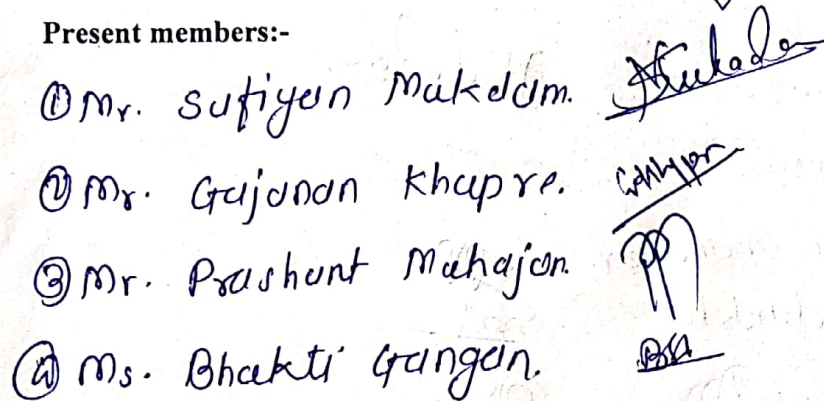 Present members:-
① Mr. Sufiyan Mukadam.
② Mr. Gajanan Khapre.
③ Mr. Prashant Mahajan.
④ Ms. Bhakti Gangan.